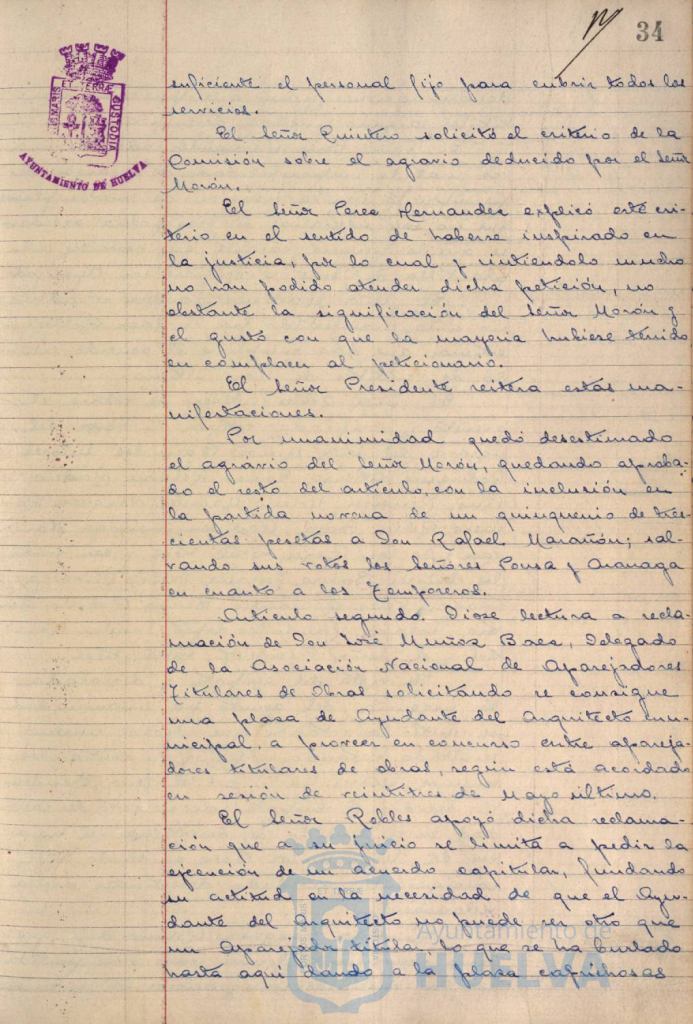 34
suficiente el personal fijo para cubrir todos los
servicios.
El Señor Quintero solicitó el criterio de la
Comisión sobre el agravio deducido por el Señor
Morón.
El Señor Perez Hernandez explicó este cri-
terio en el sentido de haberse inspirado en
la justicia, por lo cual y sintiendolo mucho
no han podido atender dicha petición, no
obstante la significación del Señor Morón y
el gusto con que la mayoria hubiese tenido
en complacer al peticionario.
El Señor Presidente reitera estas ma-
nifestaciones.
Por unanimidad quedó desestimado
el agravio del Señor Morón, quedando aproba-
do el resto del artículo, con la inclusión en
la partida novena de un quinquenio de tres-
cientas pesetas a Don Rafael Marañón; sal-
vando sus votos los Señores Ponsa y Aranaga
en cuanto a los Temporeros.
Artículo segundo. Diose lectura a recla-
mación de Don José Muñoz Baez, Delegado
de la Asociación Nacional de Aparejadores
Titulares de Obras solicitando se consigne
una plaza de Ayudante del Arquitecto mu-
nicipal, a proveer en concurso entre apareja-
dores titulares de obras, según está acordado
en sesión de veintitres de Mayo último.
El Señor Robles apoyó dicha reclama-
ción que a su juicio se limita a pedir la
ejecución de un acuerdo capitular, fundando
su actitud en la necesidad de que el Ayu-
dante del Arquitecto no puede ser otro que
un Aparejador titular, lo que se ha burlado
hasta aqui dando a la plaza caprichosas
ET TERRÆ
CUSTODIA
AYUNTAMIENTO DE HUELVA
Ayuntamiento de
HUELVA